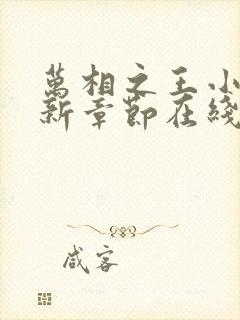 萬相之王小
新章節在綫
咸客